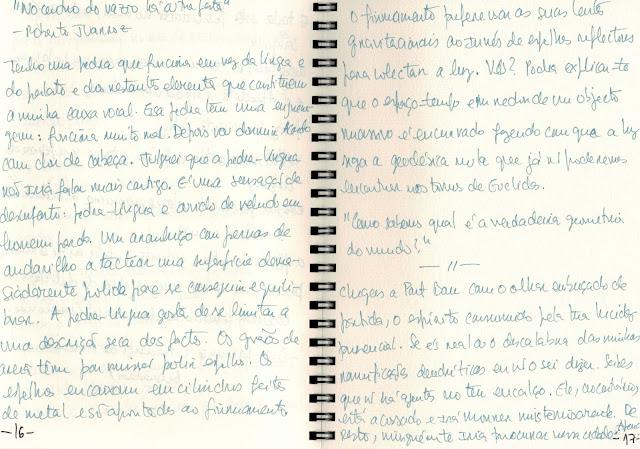 "No centro do vazio há outra festa"
– Roberto Juarroz
Tenho uma pedra que funciona em vez da língua e
do palato e dos restantes elementos que constituem
a minha caixa vocal. Essa pedra tem uma
funciona muito mal. Depois vou dormir
com dor de cabeça. Julguei que a pedra-língua
não iria falar mais contigo. É uma sensação de
pedra-língua e ouvido de veludo em
homem pardo. Um com pernas de
andarilho a tactear uma superfície dema-
siadamente polida para se conseguir equili-
brar. A pedra-língua gosta de se limitar a
uma descrição seca dos factos. Os grãos de
areia têm por missão polir espelhos. Os
espelhos encaixam em cilindros feitos
de metal e são apontados ao firmamento.
–16–
O firmamento prefere usar as suas lentes
gravitacionais ao invés de espelhos reflectores
para colectar a luz. Vês? Podia explicar-te
que o espaço-tempo em redor de um objecto
massivo é encurvado fazendo com que a luz
siga a geodésica nula que já não podemos
encontrar nos termos de Euclides.
"Como sabemos qual é a verdadeira geometria
do mundo?"
— 11 —
Chegas a Port Dam com o olhar embaçado de
o espírito consumido pela tua lucidez
Se és real ou o descalabro das minhas
ramificações dendríticas eu não sei dizer. Sabes
que não há agentes no teu encalço. Ele,
está acossado e irá morrer misteriosamente. De
resto, ninguém te iria procurar nessa cidade.
–17–